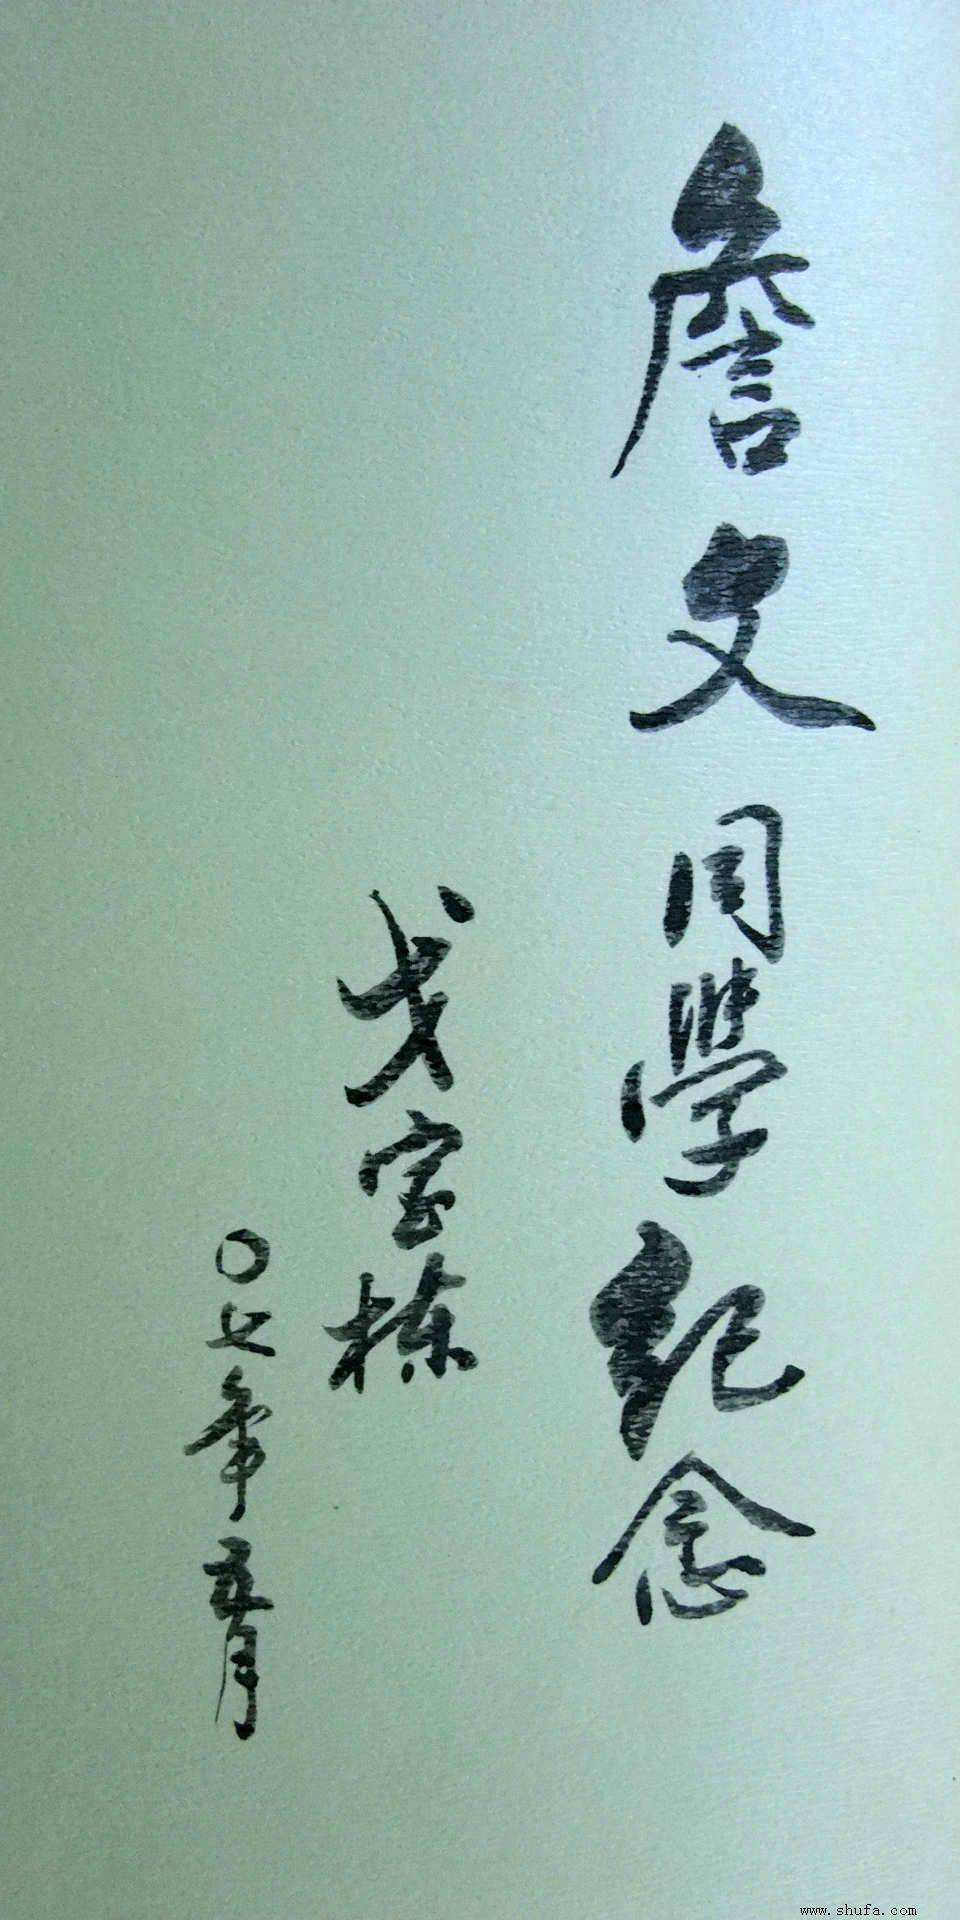 詹文同學纪念
戈宝栋
〇七年五月
www.shufa.com